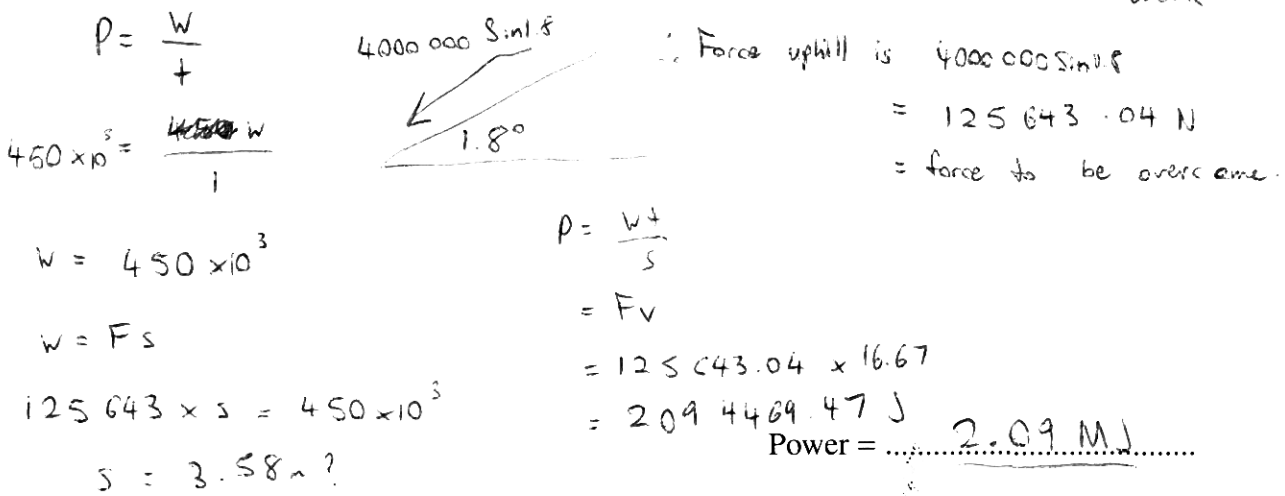 P = W
t
450 x10³ = W
1
W = 450 x10³
W = Fs
125 643 x s = 450 x10³
s = 3.58 m ?
4000 000 Sin1.8
1.8°
∴ Force uphill is 4000 000 Sin1.8
= 125 643 .04 N
= force to be overcome.
P = Wt
s
= Fv
= 125 643.04 x 16.67
= 209 4469.47 J
Power = 2.09 MJ